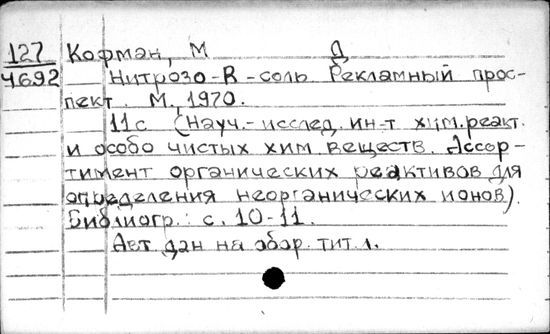 127 Кофман, М Д
4692 Нитрозо-R-соль Рекламный прос-
пект. М., 1970.
11с (Науч.-исслед. ин-т хим. реакт.
и особо чистых хим веществ. Ассор-
тимент органических реактивов для
определения неорганических ионов).
Библиогр.: с. 10-11.
Авт дан на обор. тит. л.